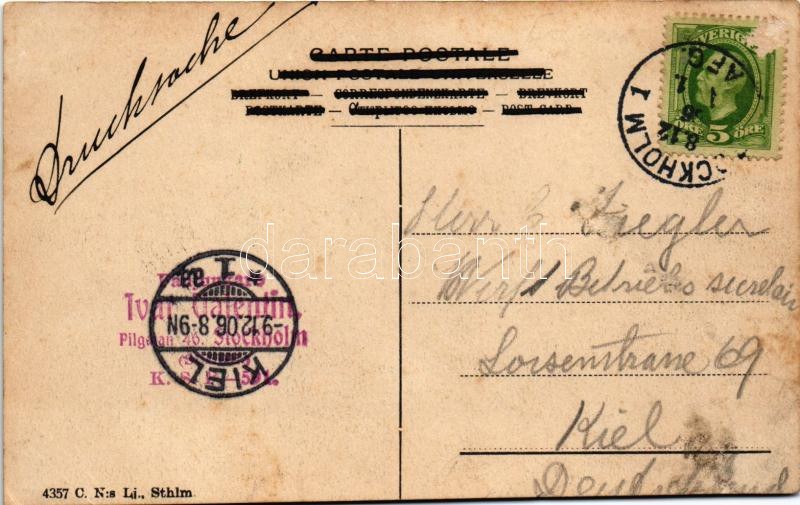 Drucksache
CARTE POSTALE
UNION POSTALE UNIVERSELLE
BREFKORT – CORRESPONDENZKARTE – BREVKORT
POSTKARTE – Открытое письмо – POST CARD
SVERIGE
5 ÖRE
STOCKHOLM 1
8.12
1 1
AFG.
Herrn Ziegler
Werft Betriebs secretair
Kiel
Deutschland
69
Ivar Valentin.
Pilgatan 46. Stockholm
KIEL
-9.12.06.8-9N
1
4357 C. N:s Lj., Sthlm
darabanth